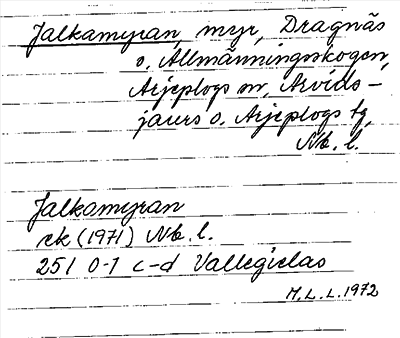 Jalkamyran, myr, Dragnäs
o. Allmänningsskogen,
Arjeplogs sn, Arvids-
jaurs o. Arjeplogs tg,
Nb. l.
Jalkamyran
rk (1971) Nb. l.
25I 0-1 c-d Vallegielas
M.L.L. 1972